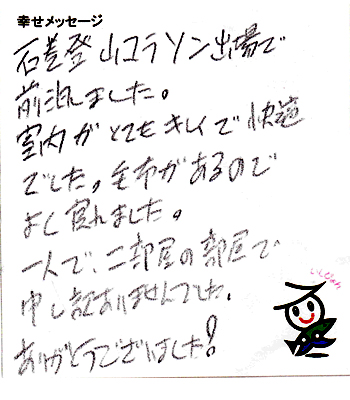 幸せメッセージ
石巻登山マラソン出場で
前泊しました。
室内がとてもキレイで快適
でした。毛布があるので
よく寝れました。
一人で、二部屋の部屋で
申し訳ありませんでした。
ありがとうございました!